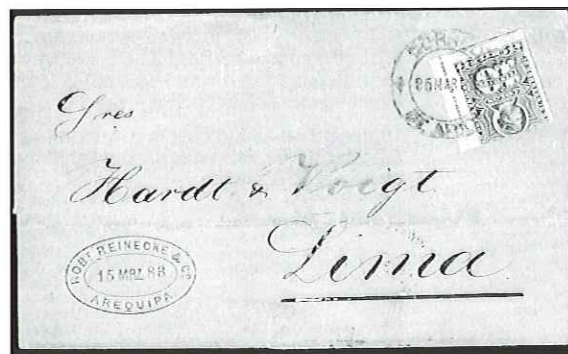 Sres
Hardt & Voigt
Lima
ROBT. REINECKE & Cº
15 MRZ. 88
AREQUIPA